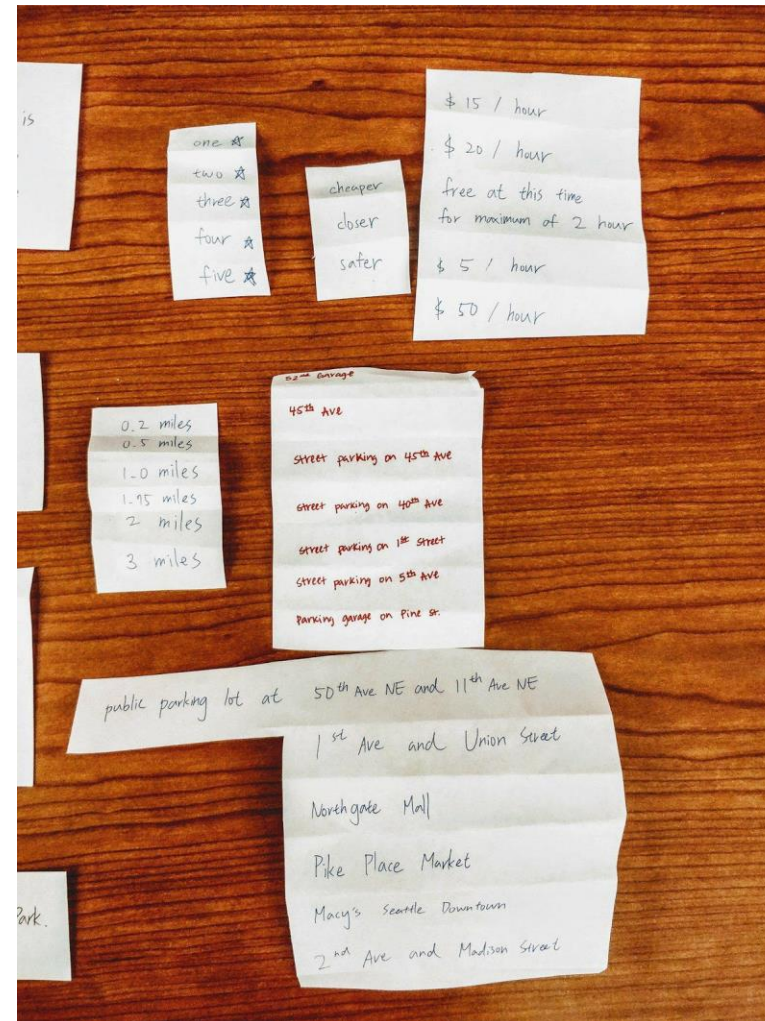 is
one ☆
two ☆
three ☆
four ☆
five ☆
cheaper
closer
safer
$ 15 / hour
$ 20 / hour
free at this time
for maximum of 2 hour
$ 5 / hour
$ 50 / hour
0.2 miles
0.5 miles
1.0 miles
1.75 miles
2 miles
3 miles
52nd Garage
45th Ave
street parking on 45th Ave
street parking on 40th Ave
street parking on 1st street
street parking on 5th Ave
Parking garage on Pine st.
public parking lot at 50th Ave NE and 11th Ave NE
1st Ave and Union Street
Northgate Mall
Pike Place Market
Macy's Seattle Downtown
2nd Ave and Madison Street
Park.